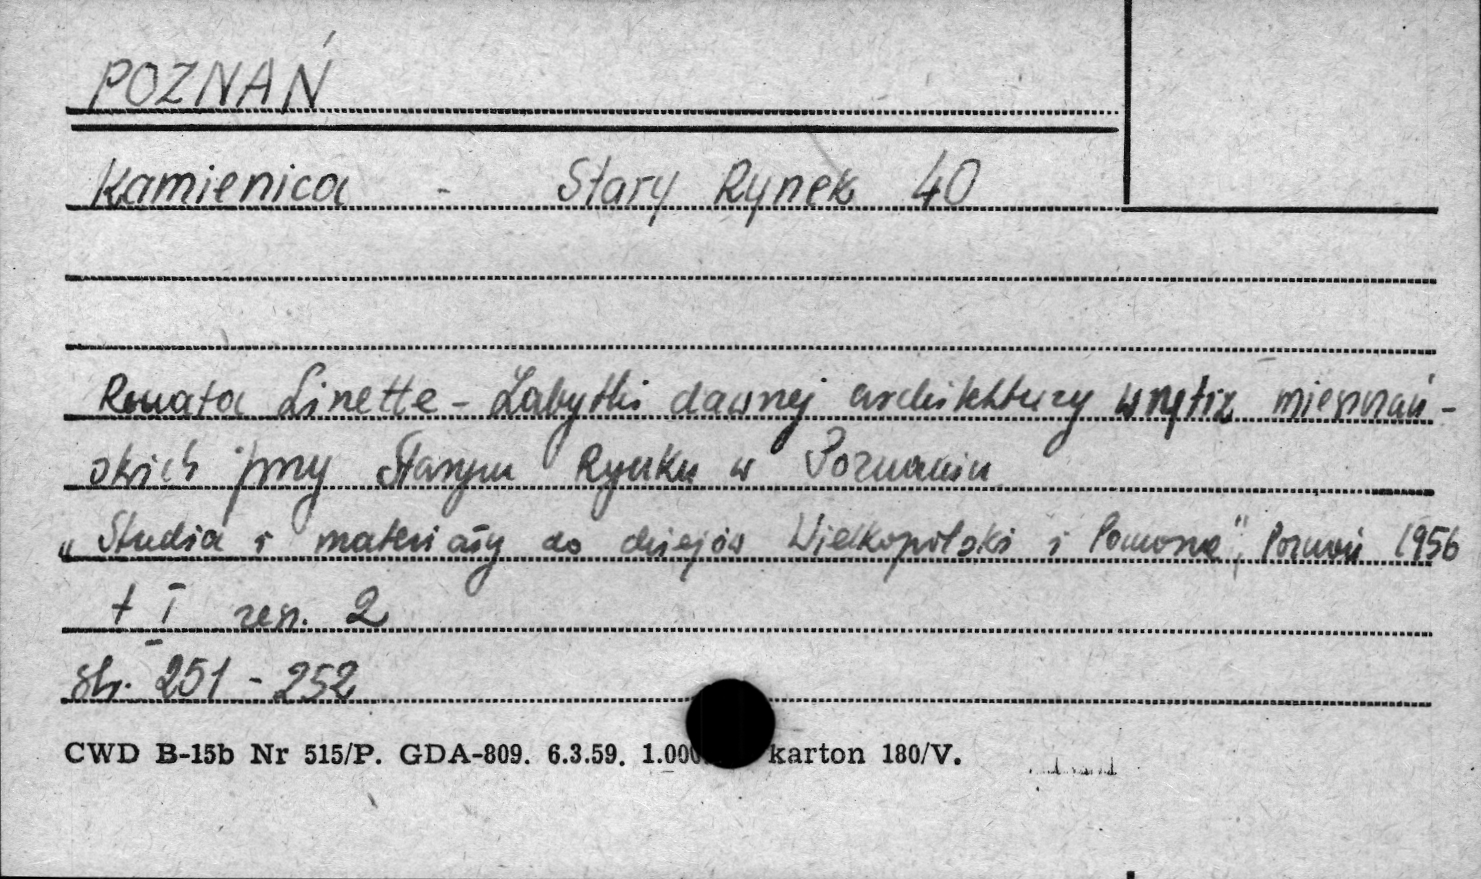 POZNAŃ
Kamienica - Stary Rynek 40
Renata Linette - Zabytki dawnej architektury wnętrz mieszczań-
skich przy Starym Rynku w Poznaniu
„Studia i materiały do dziejów Wielkopolski i Pomorza", Poznań 1956
t I zesz. 2
str. 251 - 252
CWD B-15b Nr 515/P. GDA-809. 6.3.59. karton 180/V.